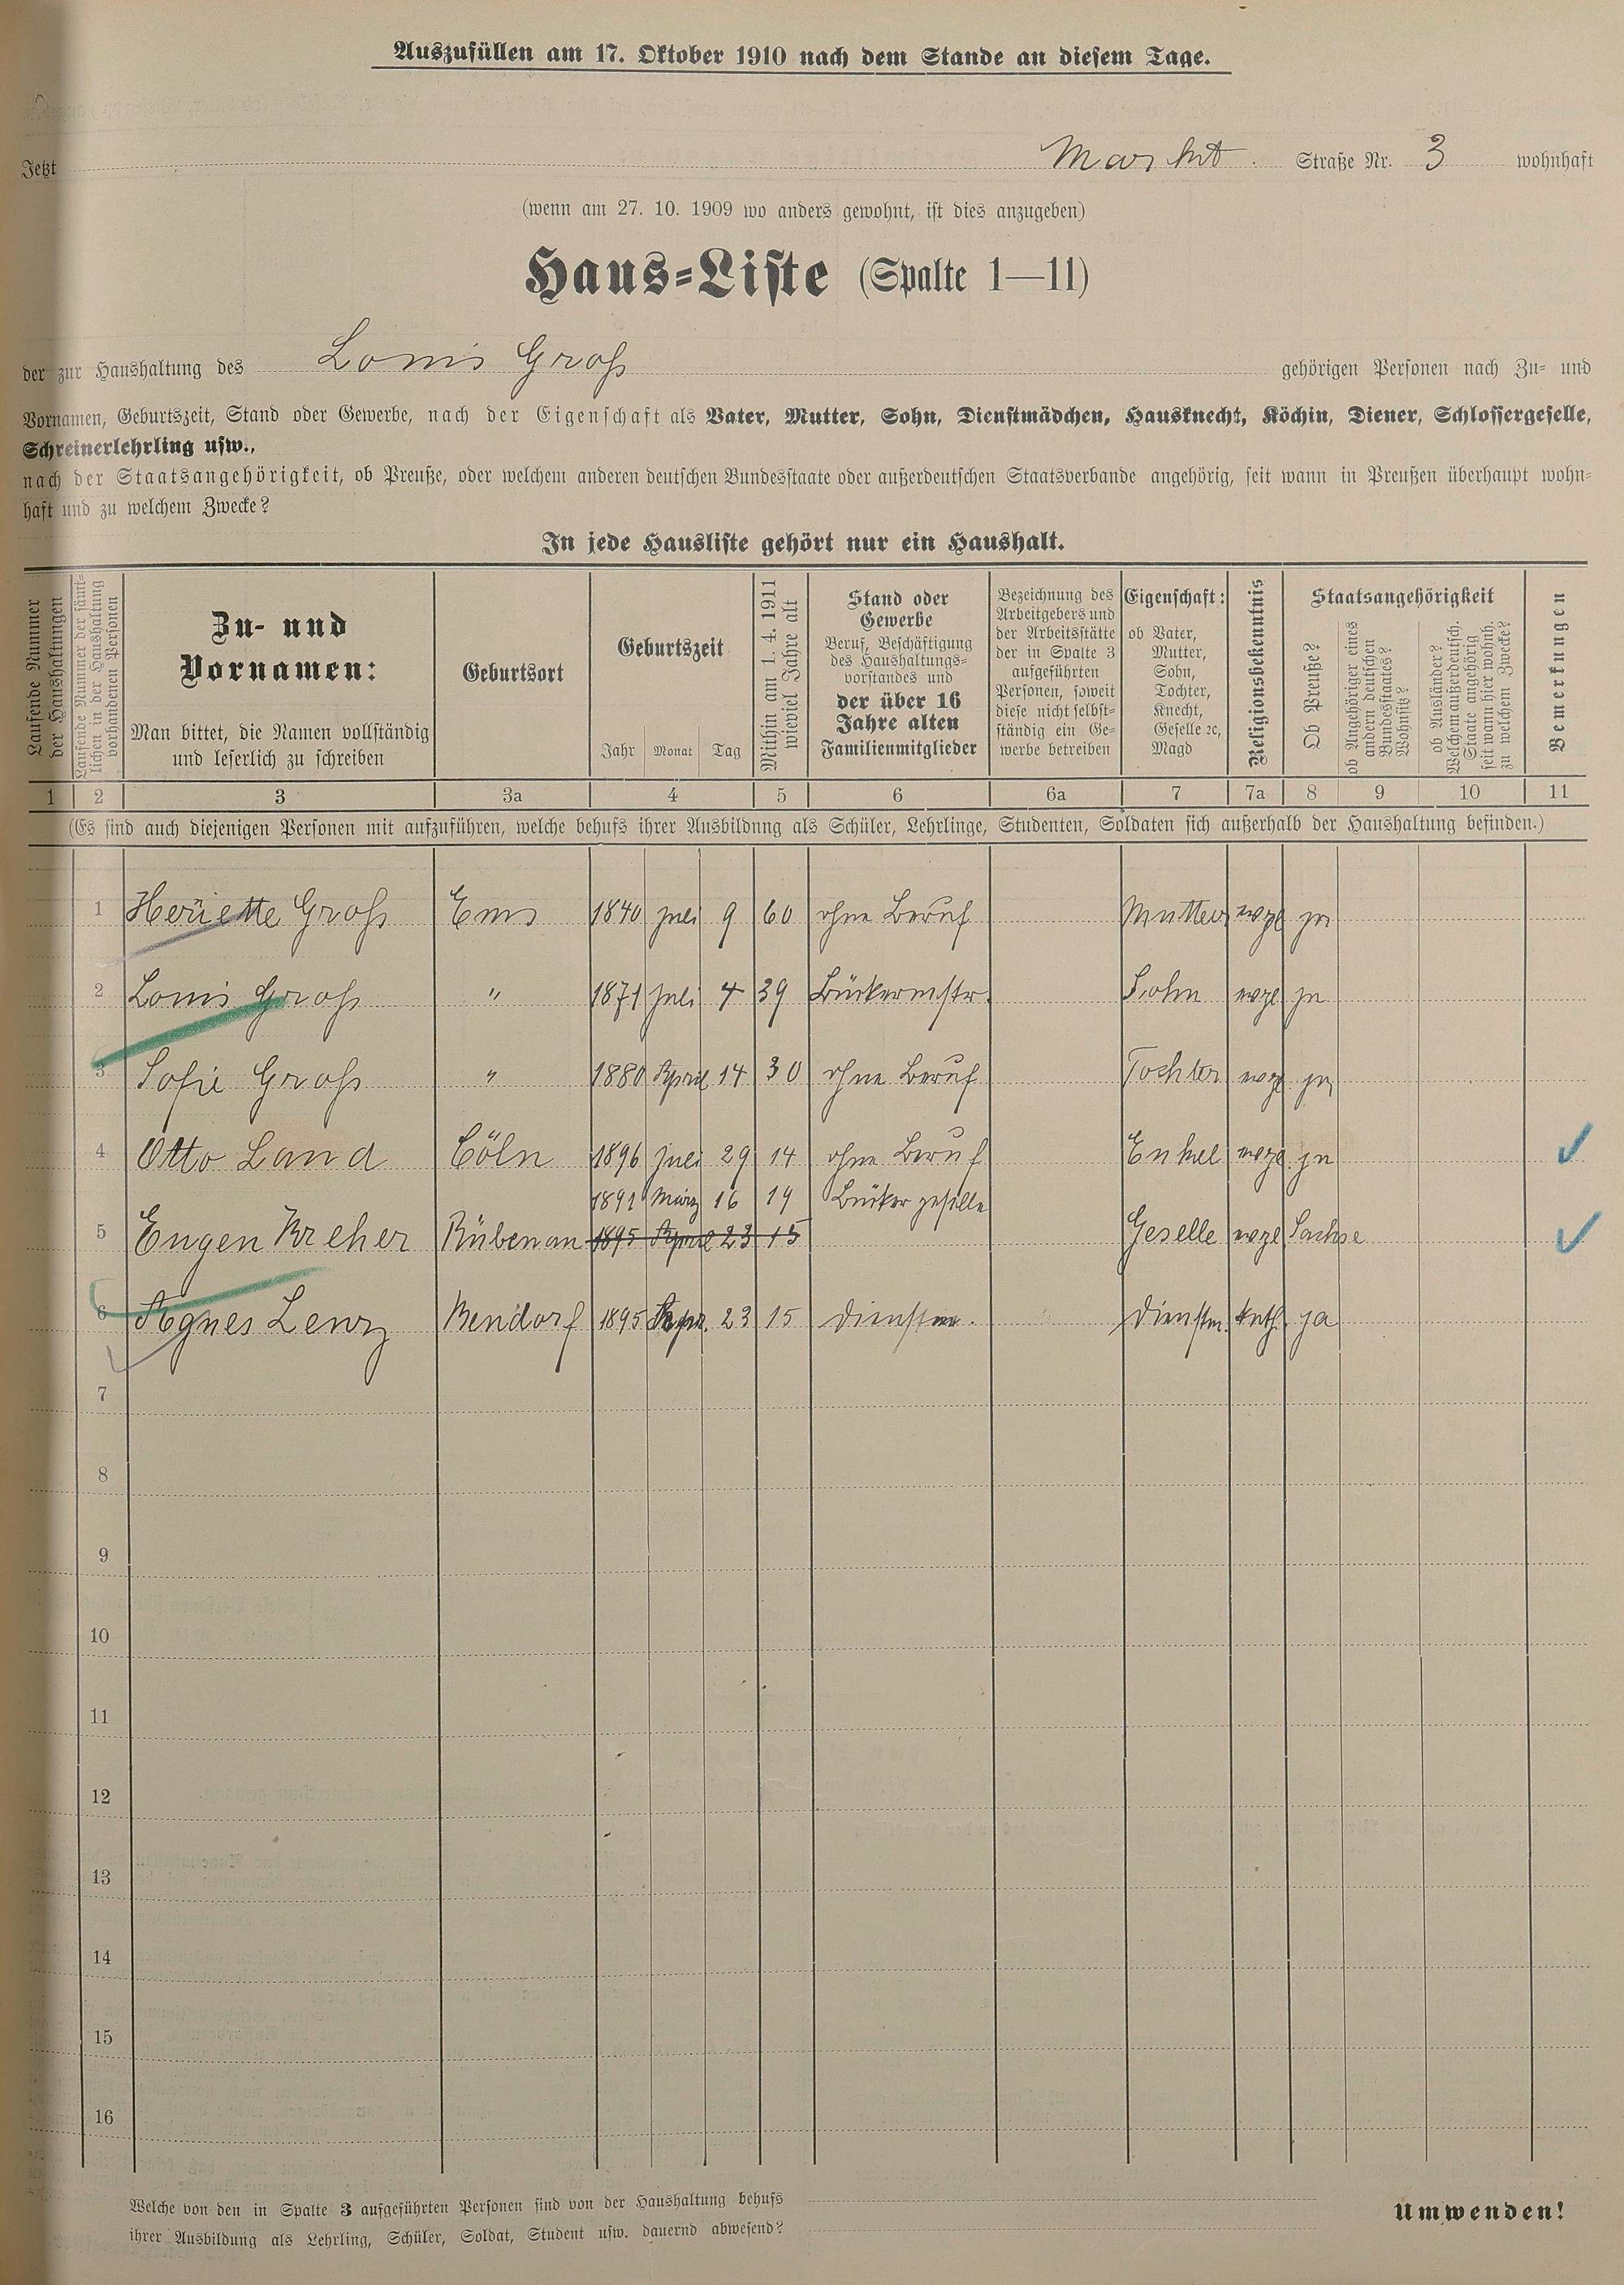 Auszufüllen am 17. Oktober 1910 nach dem Stande an diesem Tage.
Jetzt Markt. Straße Nr. 3 wohnhaft
(wenn am 27. 10. 1909 wo anders gewohnt, ist dies anzugeben)
Haus-Liste (Spalte 1—11)
der zur Haushaltung des Louis Groß gehörigen Personen nach Zu- und
Vornamen, Geburtszeit, Stand oder Gewerbe, nach der Eigenschaft als Vater, Mutter, Sohn, Dienstmädchen, Hausknecht, Köchin, Diener, Schlossergeselle,
Schreinerlehrling usw.,
nach der Staatsangehörigkeit, ob Preuße, oder welchem anderen deutschen Bundesstaate oder außerdeutschen Staatsverbande angehörig, seit wann in Preußen überhaupt wohn-
haft und zu welchem Zwecke?
In jede Hausliste gehört nur ein Haushalt.
Laufende Nummer
der Haushaltungen
Laufende Nummer der sämt-
lichen in der Haushaltung
vorhandenen Personen
Zu- und
Vornamen:
Man bittet, die Namen vollständig
und leserlich zu schreiben
Geburtsort
Geburtszeit
Jahr Monat Tag
Mithin am 1. 4. 1911
wieviel Jahre alt
Stand oder
Gewerbe
Beruf, Beschäftigung
des Haushaltungs-
vorstandes und
der über 16
Jahre alten
Familienmitglieder
Bezeichnung des
Arbeitgebers und
der Arbeitsstätte
der in Spalte 3
aufgeführten
Personen, soweit
diese nicht selbst-
ständig ein Ge-
werbe betreiben
Eigenschaft:
ob Vater,
Mutter,
Sohn,
Tochter,
Knecht,
Geselle ꝛc,
Magd
Religionsbekenntnis
Staatsangehörigkeit
Ob Preuße?
ob Angehöriger eines
andern deutschen
Bundesstaates?
Wohnsitz?
ob Ausländer?
Welchem außerdeutsch.
Staate angehörig
seit wann hier wohnh.
zu welchem Zwecke?
Bemerkungen
1 2 3 3a 4 5 6 6a 7 7a 8 9 10 11
(Es sind auch diejenigen Personen mit aufzuführen, welche behufs ihrer Ausbildung als Schüler, Lehrlinge, Studenten, Soldaten sich außerhalb der Haushaltung befinden.)
1 Heriette Groß Ems 1840 Juli 9 60 ohne Beruf Mutter evgl ja
2 Louis Groß " 1871 Juli 4 39 Bäckermstr. Sohn evgl ja
3 Sofie Groß " 1880 April 14 30 ohne Beruf Tochter evgl ja
4 Otto Land Cöln 1896 Juli 29 14 ohne Beruf Enkel evgl ja
1891 März 16 19 Bäckergeselle
5 Eugen Kreher Rübenau 1895 April 23 15 Geselle evgl Sachse
6 Agnes Lenz Bendorf 1895 Apr. 23 15 Dienstm. Dienstm. kath. ja
7
8
9
10
11
12
13
14
15
16
Welche von den in Spalte 3 aufgeführten Personen sind von der Haushaltung behufs
ihrer Ausbildung als Lehrling, Schüler, Soldat, Student usw. dauernd abwesend?
Umwenden!